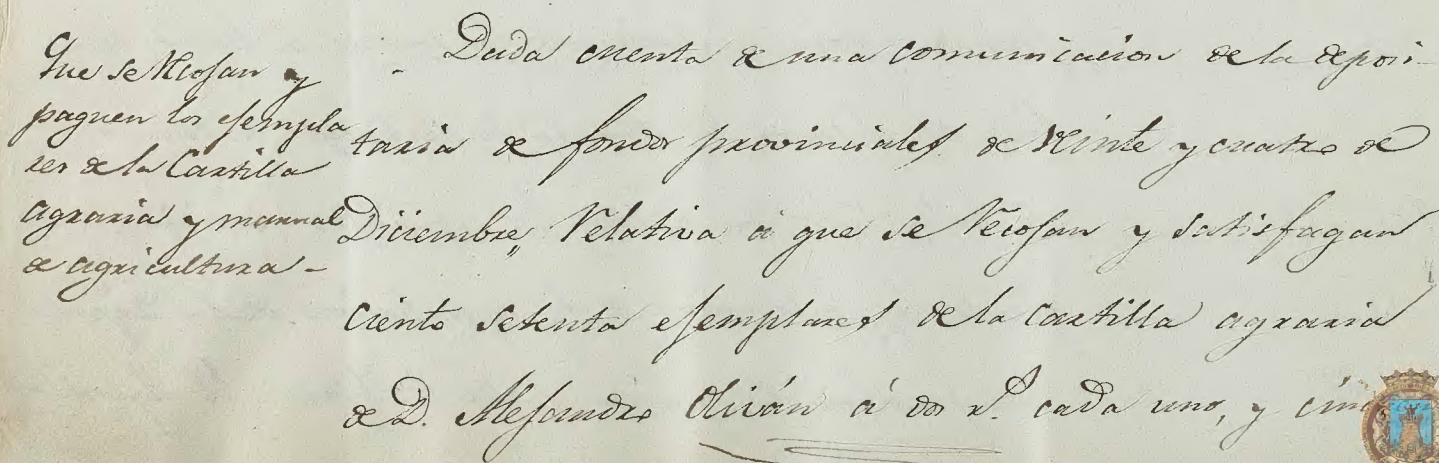 Que se recojan y
paguen los ejempla
res de la Cartilla
agraria y manual
de agricultura -
Dada cuenta de una comunicacion de la deposi-
taria de fondos provinciales de veinte y cuatro de
Diciembre, relativa á que se recojan y satisfagan
ciento setenta ejemplares de la cartilla agraria
de D. Alejandro Oliván á dos rs. cada uno, y